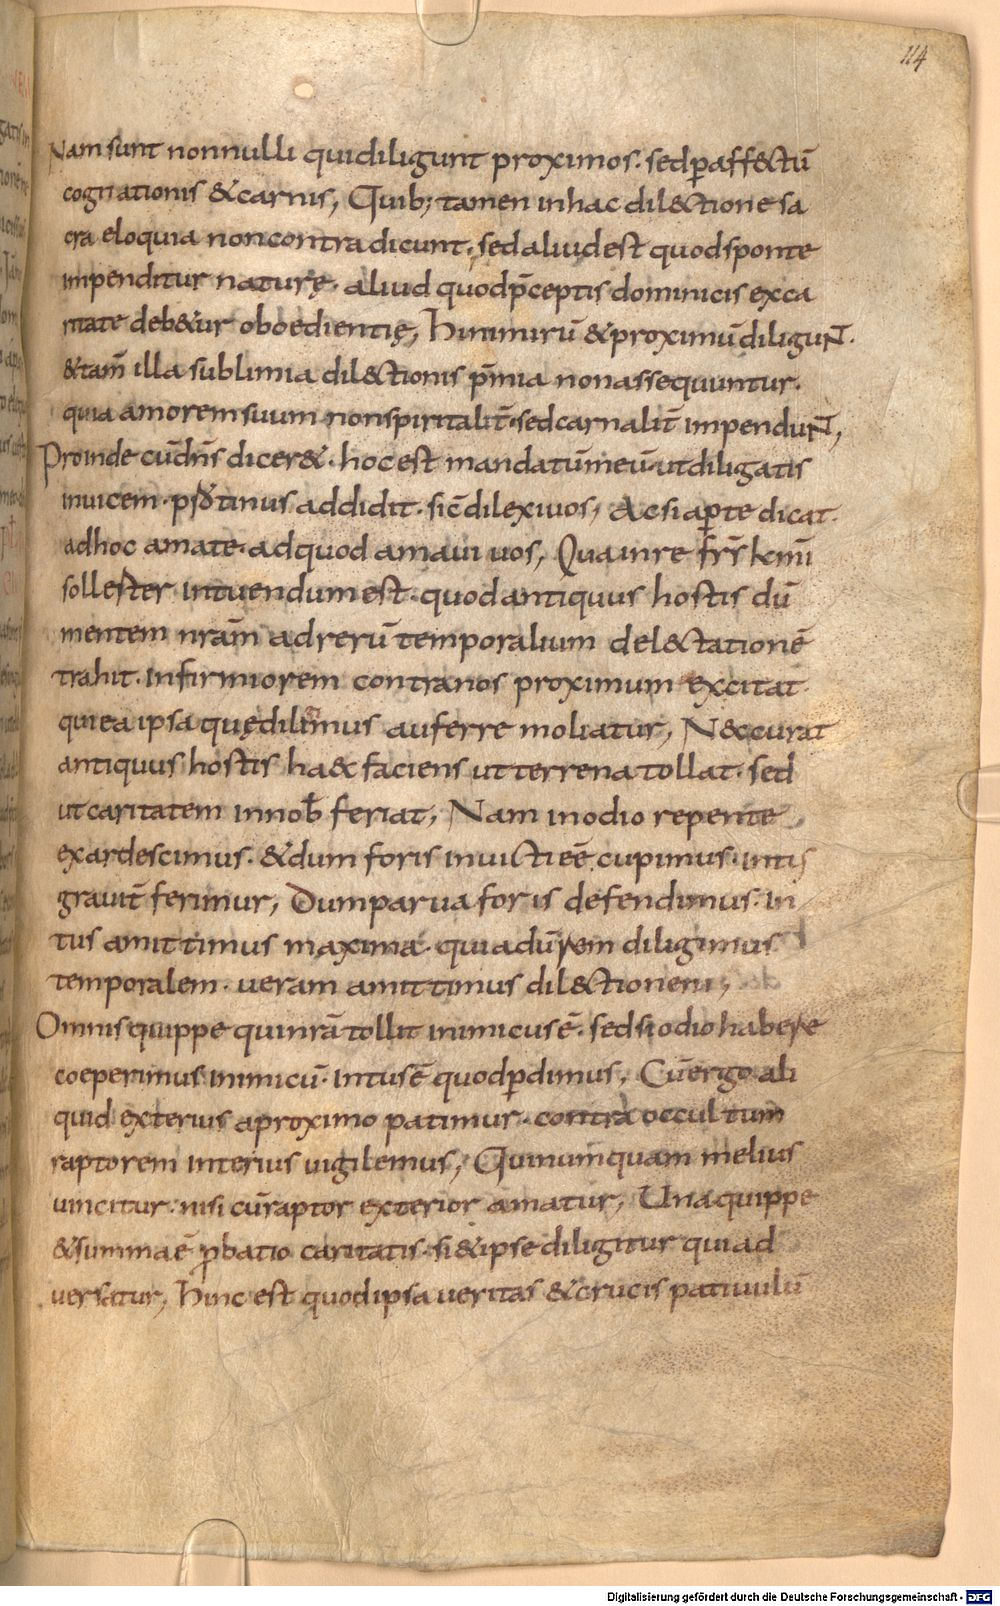 114
Nam sunt nonnulli qui diligunt proximos. sed ꝑ aff&ctū
cognationis & carnis, Quib; tamen in hac dil&ctione sa
cra eloquia non contradicunt. sed aliud est quod sponte
impenditur naturę. aliud quod p̄ceptis dominicis ex ca
ritate deb&ur oboedientię, hi nimirū & proximū diligunt.
& tam̄ illa sublimia dil&ctionis p̄mia non assequuntur.
quia amorem suum non spiritalit̄. sed carnalit̄ impendunt,
Proinde cū dn̄s dicer&. hoc est mandatū meū. ut diligatis
inuicem. ꝓtinus addidit. sic̄ dilexi uos, Ac si aꝑte dicat.
ad hoc amate. ad quod amaui uos, Qua in re fr̄s k̄mi
sollester intuendum est. quod antiquus hostis dū
mentem nr̄am ad rerū temporalium del&ctationē
trahit. infirmiorem contra nos proximum excitat.
qui ea ipsa quę diligimus auferre moliatur, N& curat
antiquus hostis haec faciens ut terrena tollat. sed
ut caritatem in nob̄ feriat, Nam in odio repente
exardescimus. & dum foris inuicti eē cupimus. intus
grauit̄ ferimur, Dum parua foris defendimus. in
tus amittimus maxima. quia dū rem diligimus
temporalem. ueram amittimus dil&ctionem,
Omnis quippe qui nr̄a tollit inimicus ē. sed si odio habere
coeperimus inimicū. intus ē quod ꝑdimus, Cū ergo ali
quid exterius a proximo patimur. contra occultum
raptorem interius uigilemus, Qui numquam melius
uincitur. nisi cū raptor exterior amatur, Una quippe
& summa ē ꝓbatio caritatis. si & ipse diligitur qui ad
uersatur, hinc est quod ipsa ueritas & crucis patiuulū
Digitalisierung gefördert durch die Deutsche Forschungsgemeinschaft - DFG